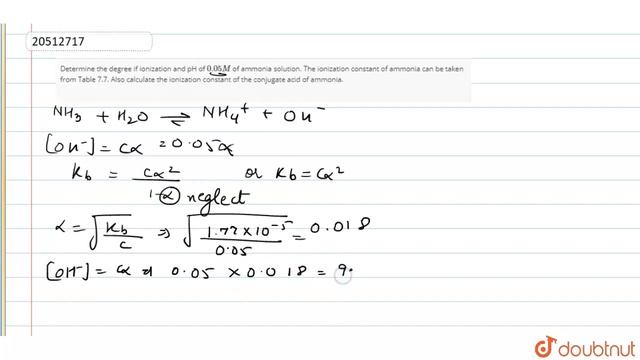 20512717
Determine the degree if ionization and pH of 0.05M of ammonia solution. The ionization constant of ammonia can be taken
from Table 7.7. Also calculate the ionization constant of the conjugate acid of ammonia.
NH₃ + H₂O ⇌ NH₄⁺ + OH⁻
[OH⁻] = Cα = 0.05α
Kb = Cα²/1-α neglect or Kb = Cα²
α = √(Kb/C) ⇒ √(1.77×10⁻⁵/0.05) = 0.018
[OH⁻] = Cα ⇒ 0.05 × 0.018 = 9.
doubtnut